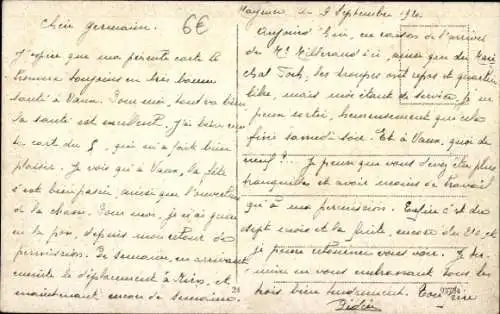 Cher Germain.
6€
J'espère que ma présente carte te
trouvera toujours en très bonne
santé à Vaux. Pour moi, tout va bien
la santé est excellente. J'ai bien reçu
ta carte du 5, qui m'a fait bien
plaisir. Je vois qu'à Vaux, la fête
s'est bien passée, ainsi que l'ouverture
de la chasse. Pour moi, je n'ai guère
eu la paix, depuis mon retour de
permission. Une semaine, en arrivant
ensuite le déplacement à et
maintenant, encore de semaine.
28
Mayence le 9 Septembre 1920
Aujourd'hui, en raison de l'arrivée
de Mr Millerand ici, ainsi que du Maré
chal Foch, les troupes ont repos et quartier
libre, mais moi étant de service, je ne
peux sortir, heureusement que cela
finira samedi soir. Et à Vaux, quoi de
neuf?... Je pense que vous devez être plus
tranquilles et avoir moins de travail
qu'à ma permission. Enfin c'est dans
sept mois et la fuite, encore du et
je pourrai retourner vous voir. Je ter-
mine en vous embrassant tous les
trois bien tendrement. Ton
Didier